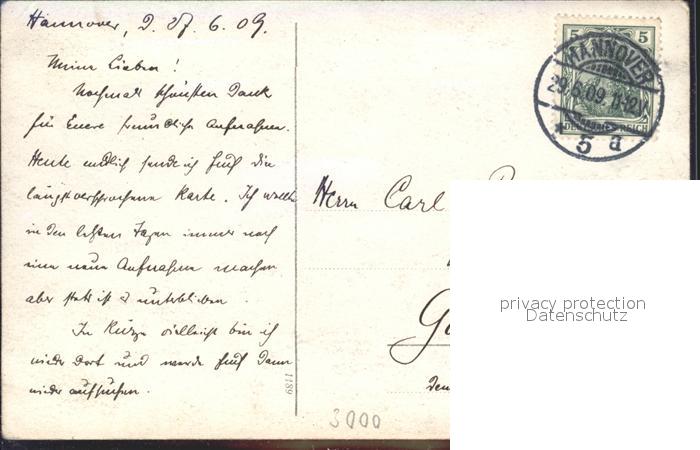 Hannover, d. 27. 6. 09.
Meine Lieben!
Nochmals schönsten Dank
für Euere freundliche Aufnahme.
Heute endlich sende ich Euch die
längst versprochene Karte. Ich wollte
in den letzten Tagen immer noch
eine neue Aufnahme machen
aber stets ist es unterblieben.
In Kürze vielleicht bin ich
wieder dort und werde Euch dann
wieder aufsuchen.
1189
3000
5 5
HANNOVER
29.6.09. 11-12
* 5 a
DEUTSCHES REICH
Herrn Carl
privacy protection
Datenschutz